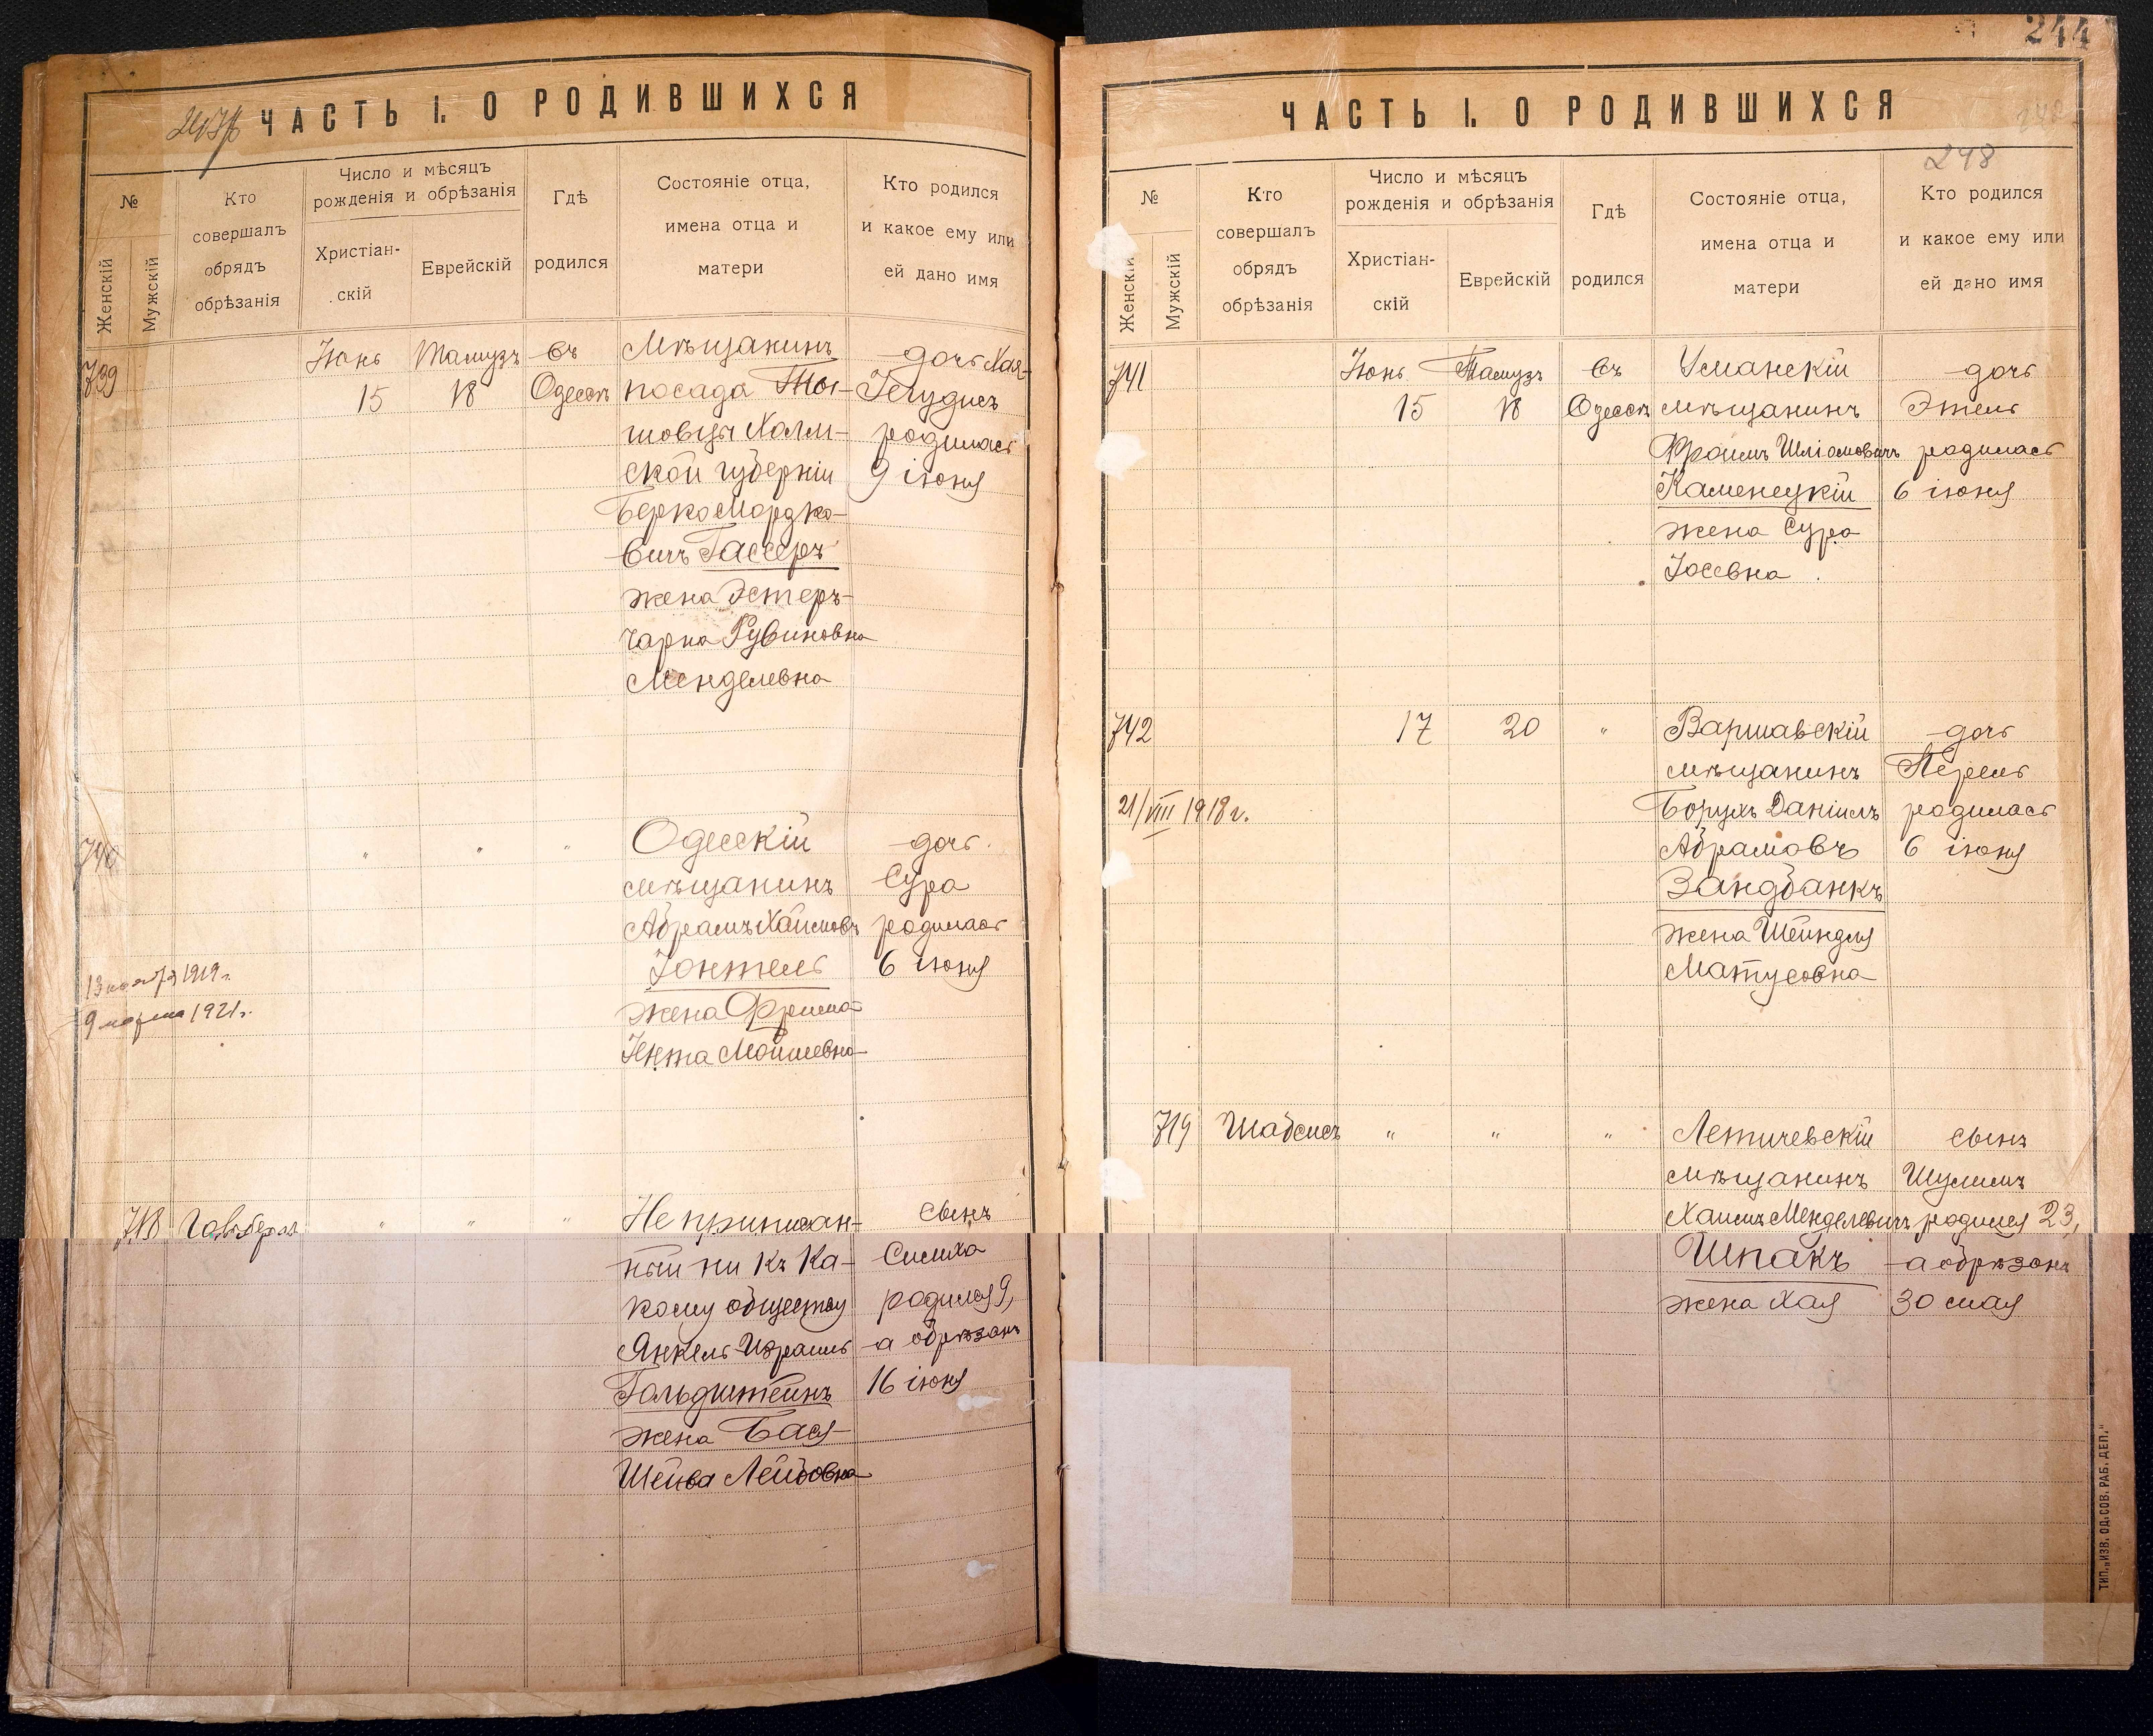 ЧАСТЬ I. О РОДИВШИХСЯ
№
Женскій
Мужскій
Кто
совершалъ
обрядъ
обрѣзанія
Число и мѣсяцъ
рожденія и обрѣзанія
Христіан-
скій
Еврейскій
Гдѣ
родился
Состояніе отца,
имена отца и
матери
Кто родился
и какое ему или
ей дано имя
739
Іюнь
15
Тамузъ
18
въ
Одессѣ
Мѣщанинъ
посада Ты-
шовцы Холм-
ской губерніи
Берко Мордко-
вичъ Гассеръ
жена Эстеръ-
Чарна Рувиновна
Менделевна
дочь Хая-
Іегудисъ
родилась
9 іюня
740
" " "
Одесскій
мѣщанинъ
Абрамъ Хаимовъ
Іонтель
жена Фрима
Ента Мойшевна
дочь
Сура
родилась
6 іюня
13 ноября 1919 г.
9 марта 1921 г.
718
" " "
Не приписан-
ный ни къ ка-
кому обществу
Янкель Израиль
Гольдштейнъ
жена Бася-
Шейва Лейбовна
сынъ
Симха
родился 9,
а обрѣзанъ
16 іюня
244
248
ЧАСТЬ I. О РОДИВШИХСЯ
№
Женскій
Мужскій
Кто
совершалъ
обрядъ
обрѣзанія
Число и мѣсяцъ
рожденія и обрѣзанія
Христіан-
скій
Еврейскій
Гдѣ
родился
Состояніе отца,
имена отца и
матери
Кто родился
и какое ему или
ей дано имя
741
Іюнь
15
Тамузъ
18
въ
Одессѣ
Уманскій
мѣщанинъ
Фроимъ Шліомовичъ
Каменецкій
жена Сура
Іосевна
дочь
Этель
родилась
6 іюня
742
17
20
"
Варшавскій
мѣщанинъ
Борухъ Даніилъ
Абрамовъ
Зандбанкъ
жена Шейндля
Матусовна
дочь
Перель
родилась
6 іюня
21/VIII 1918 г.
719
Шабсисъ
" " "
Летичевскій
мѣщанинъ
Хаимъ Менделевичъ
Шпакъ
жена Хая
сынъ
Шулимъ
родился 23,
а обрѣзанъ
30 мая
ТИП. „ИЗВ. ОД. СОВ. РАБ. ДЕП."